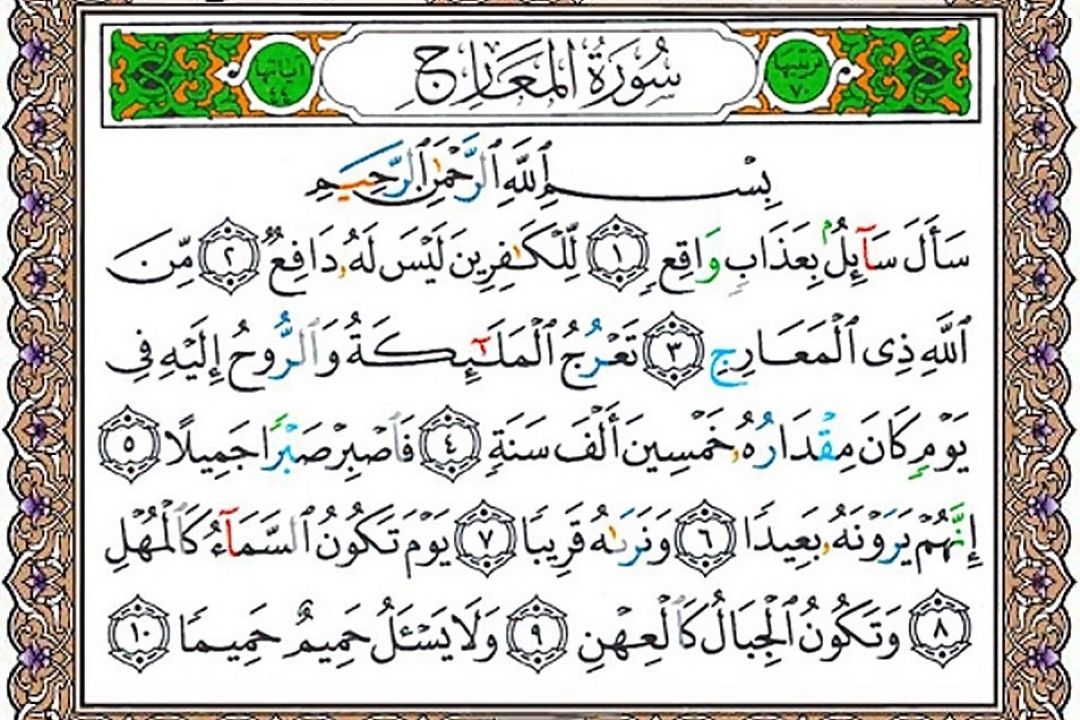 ترتيبها ٧٠ سُورَةُ المَعَارِجِ آياتها ٤٤
بِسْمِ ٱللَّهِ ٱلرَّحْمَٰنِ ٱلرَّحِيمِ
سَأَلَ سَآئِلُۢ بِعَذَابٍ وَاقِعٍ ١ لِّلْكَٰفِرِينَ لَيْسَ لَهُۥ دَافِعٌ ٢ مِّنَ
ٱللَّهِ ذِى ٱلْمَعَارِجِ ٣ تَعْرُجُ ٱلْمَلَٰٓئِكَةُ وَٱلرُّوحُ إِلَيْهِ فِى
يَوْمٍ كَانَ مِقْدَارُهُۥ خَمْسِينَ أَلْفَ سَنَةٍ ٤ فَٱصْبِرْ صَبْرًا جَمِيلًا ٥
إِنَّهُمْ يَرَوْنَهُۥ بَعِيدًا ٦ وَنَرَىٰهُ قَرِيبًا ٧ يَوْمَ تَكُونُ ٱلسَّمَآءُ كَٱلْمُهْلِ
٨ وَتَكُونُ ٱلْجِبَالُ كَٱلْعِهْنِ ٩ وَلَا يَسْـَٔلُ حَمِيمٌ حَمِيمًا ١٠